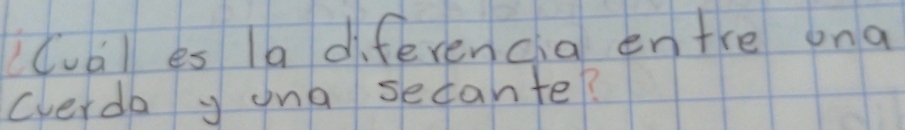 ¿Cuál es la diferencia entre una
cuerda y una secante?